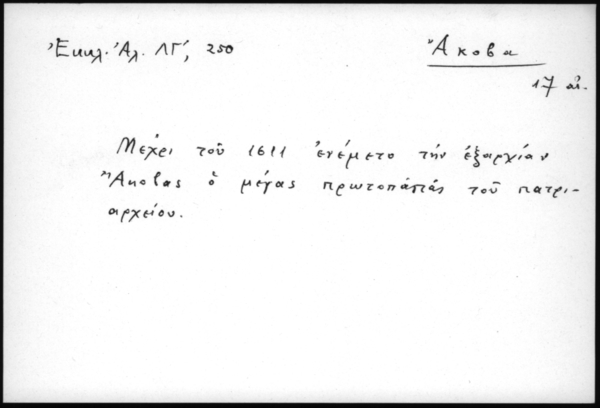 Ἐκκλ. Ἀλ. ΛΓ΄, 250
Ἄκοβα
17 αἰ.
Μέχρι τοῦ 1611 ἐνέμετο τὴν ἐξαρχίαν
Ἄκοβας ὁ μέγας πρωτοπάπας τοῦ πατρι-
αρχείου.